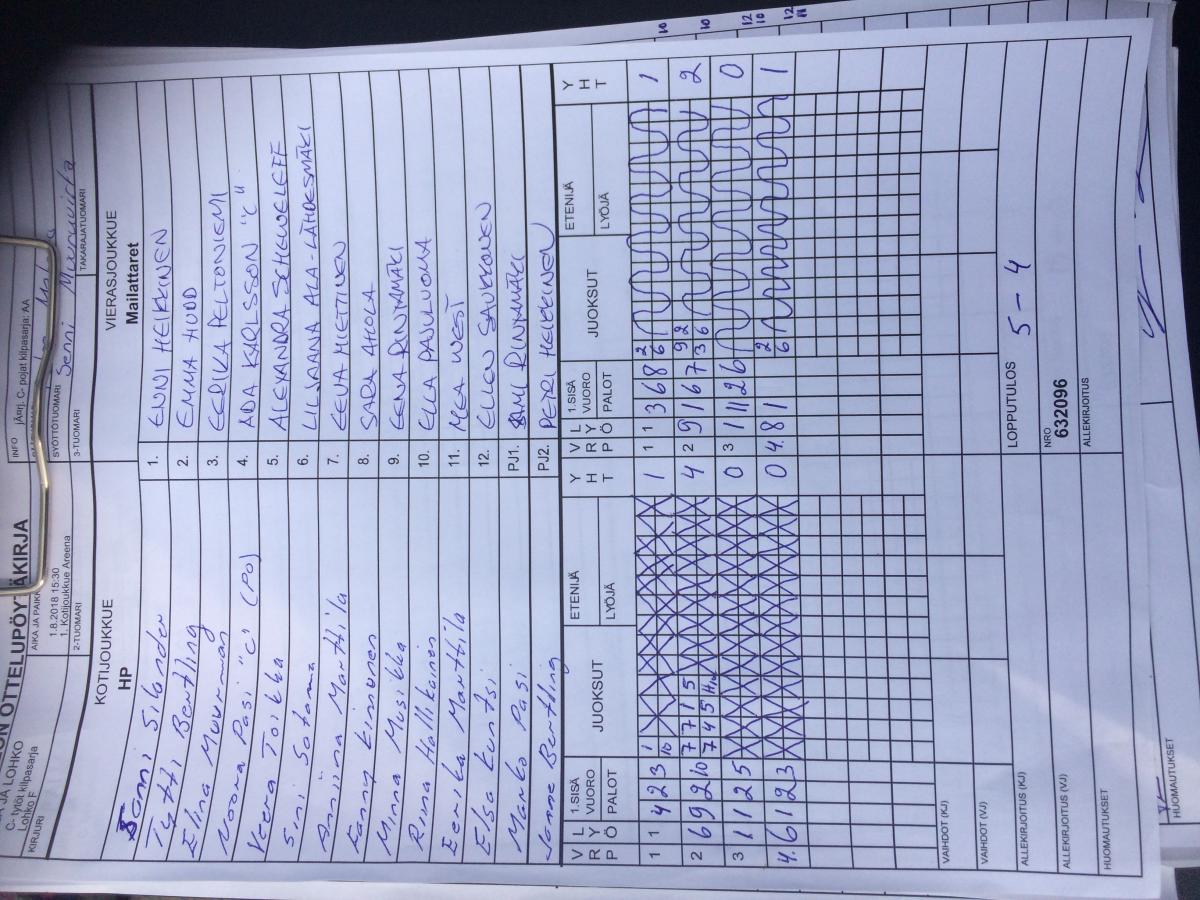 OTTELUPÖYTÄKIRJA
JA LOHKO
C- tytöt kilpasarja
Lohko F
AIKA JA PAIKKA
1.8.2018 15:30
1. Kotijoukkue Areena
INFO jÄrrj. C- pojat kilpasarja: AA
KIRJURI
2-TUOMARI
SYÖTTÖTUOMARI
3-TUOMARI
Senni
TAKARAJATUOMARI
KOTIJOUKKUE
HP
VIERASJOUKKUE
Mailattaret
Sanni Silander 1. ENNI HEIKKINEN
Tytti Bertling 2. EMMA HUDD
Elina Muurman 3. EERIKA PELTONIEMI
Noora Pasi "C" (PO) 4. ADA KARLSSON "C"
Veera Toikka 5. ALEXANDRA SCHEWELEFF
Sini Sotama 6. LILJANA ALA-LÄHDESMÄKI
Anniina Marttila 7. EEVA HIETTINEN
Fanny Kinnunen 8. SARA AHOLA
Minna Musikka 9. EENA RINTAMÄKI
Riina Hallikainen 10. ELLA PANULUOMA
Eerika Marttila 11. MEA WEST
Elsa Kuntsi 12. ELLEN SAUKKONEN
Marko Pasi PJ1. AMI RINTAMÄKI
Janne Bertling PJ2. PETRI HEIKKINEN
VRP LYÖ 1.SISÄ VUORO PALOT JUOKSUT ETENIJÄ LYÖJÄ YHT VRP LYÖ 1.SISÄ VUORO PALOT JUOKSUT ETENIJÄ LYÖJÄ YHT
1 1 4 2 3 1 10 1 1 1 3 6 8 2 6 1
2 6 9 2 10 7 7 1 5 7 4 5 4 2 9 1 6 7 9 2 3 6 2
3 1 1 2 5 0 3 1 11 12 6 0
4. 6 1 2 3 0 4. 8 1 2 6 1
VAIHDOT (KJ)
VAIHDOT (VJ)
LOPPUTULOS
5 - 4
ALLEKIRJOITUS (KJ)
NRO
632096
ALLEKIRJOITUS (VJ)
ALLEKIRJOITUS
HUOMAUTUKSET
HUOMAUTUKSET